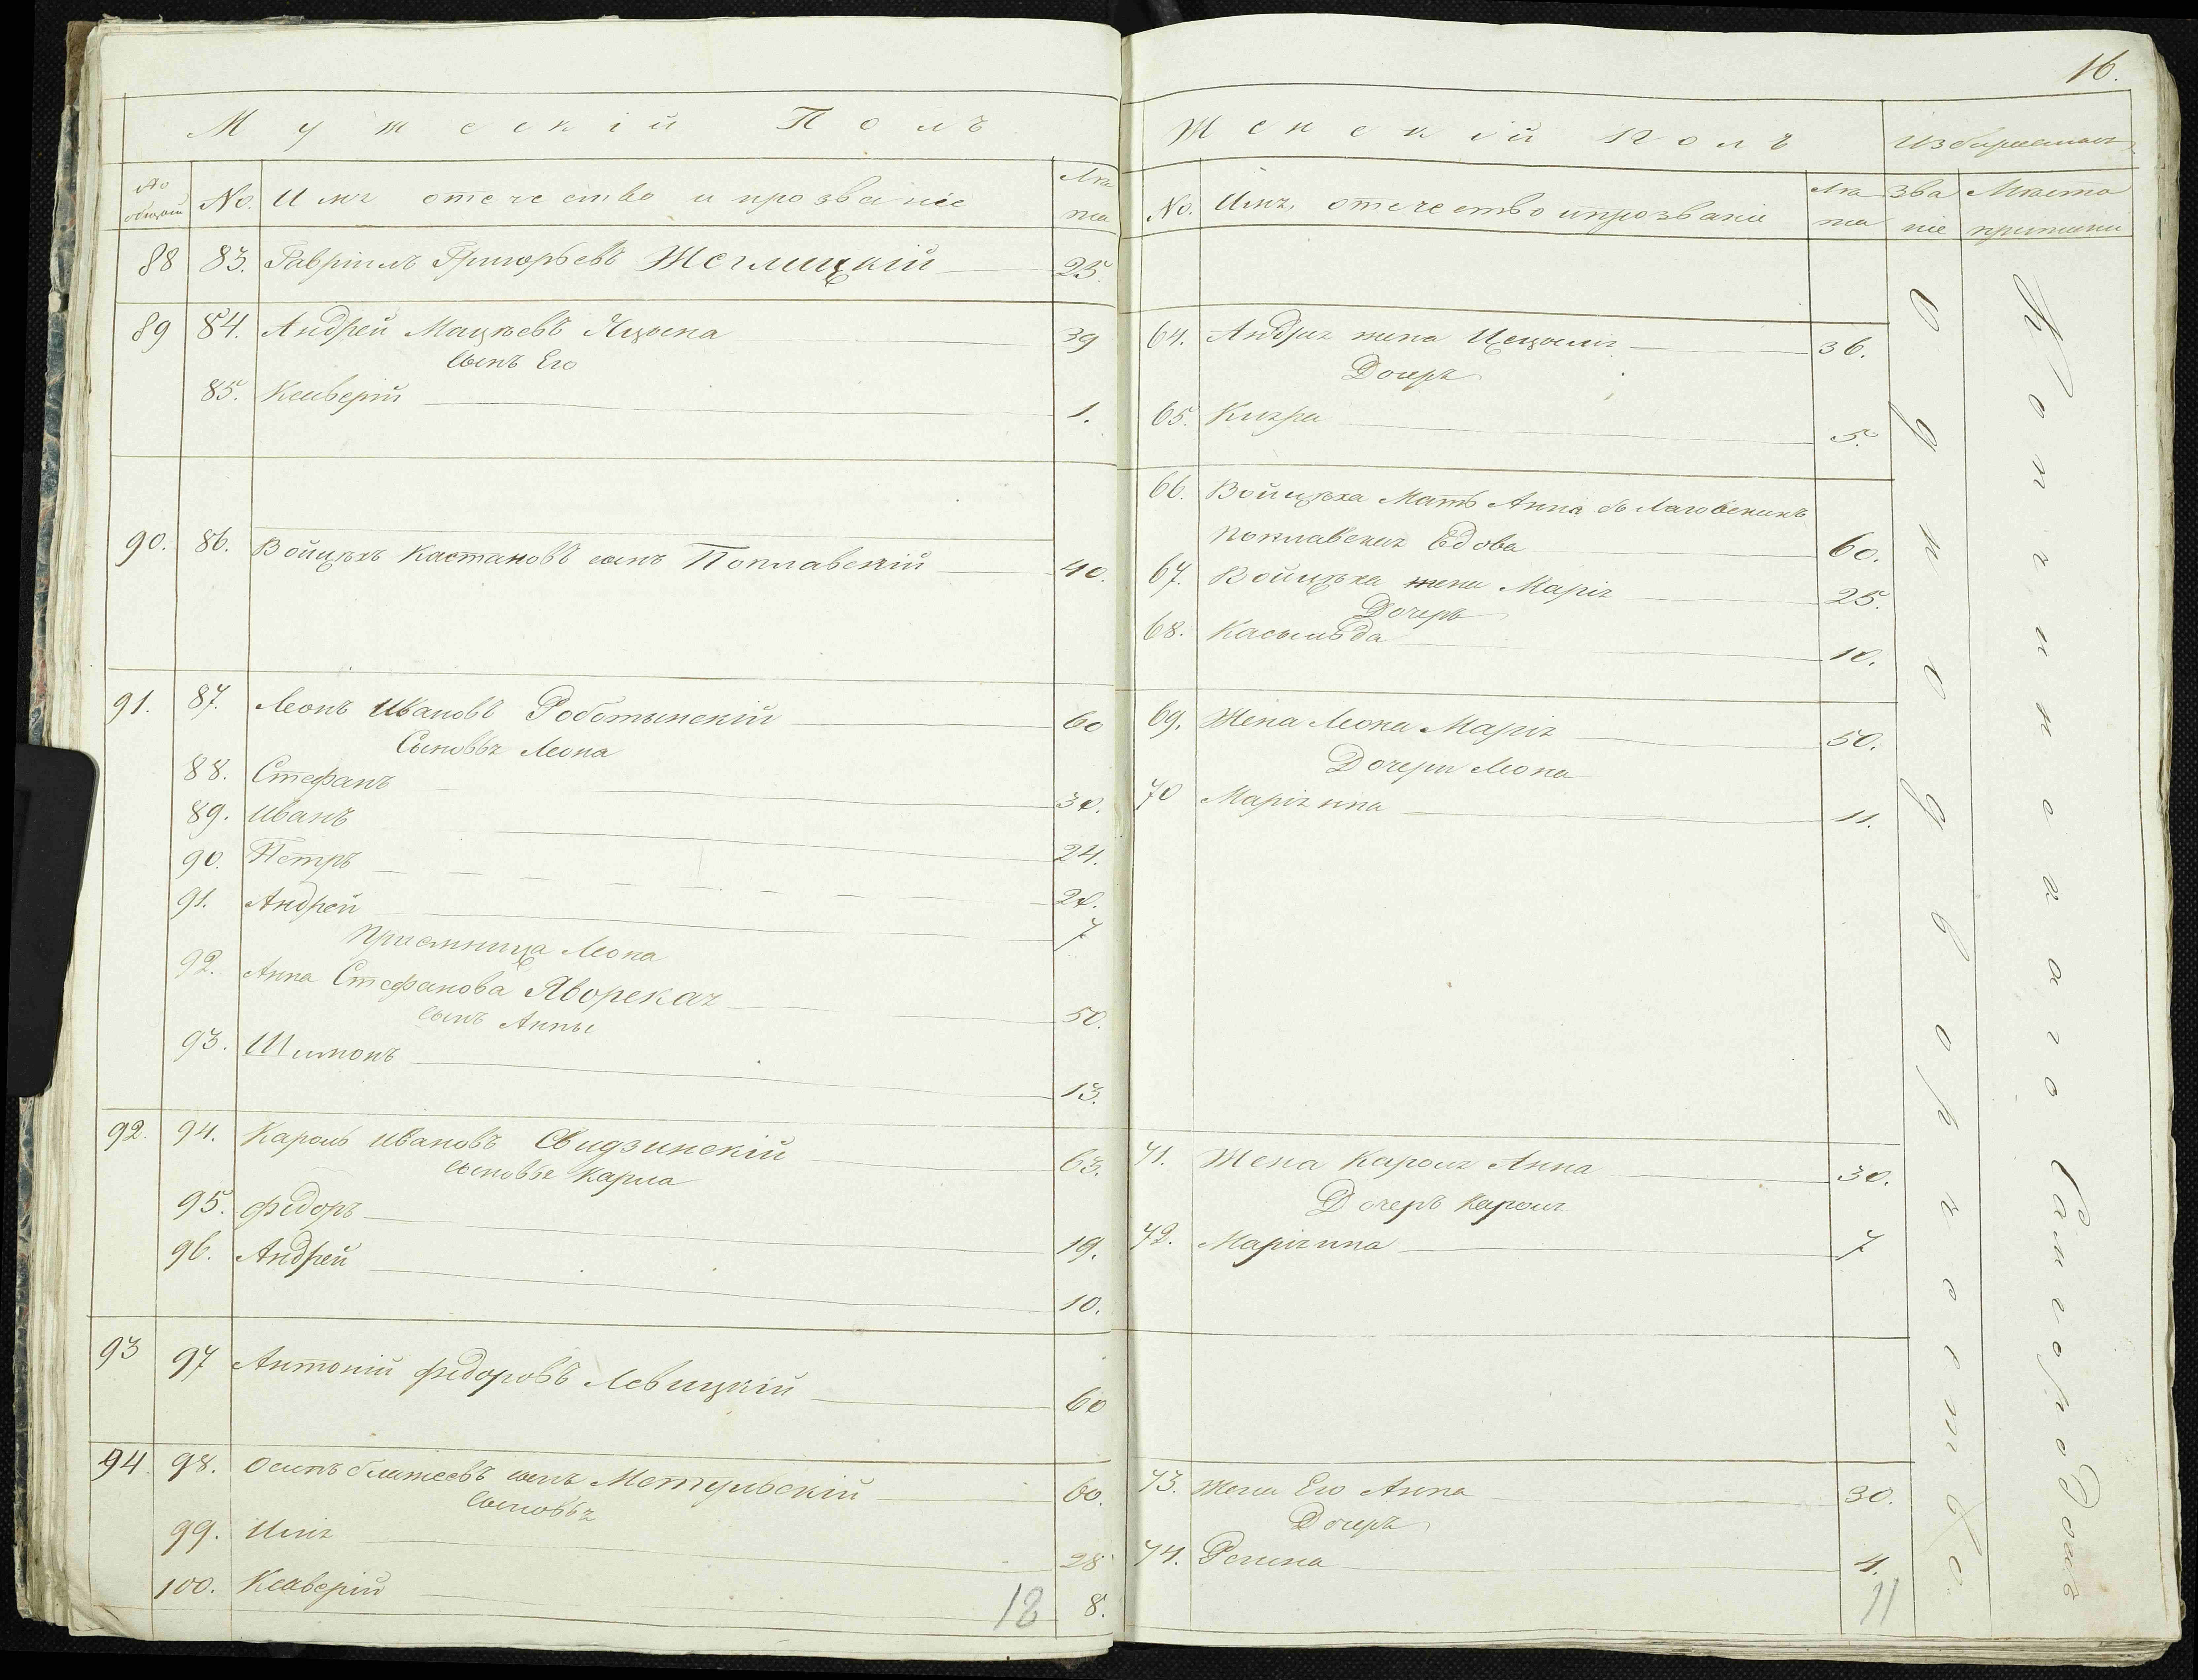 16.
Мужескій Полъ
По общій
No.
Имя отечество и прозваніе
Лѣта
88 83. Гавріилъ Григорьевъ Жеглицкій 25.
89 84. Андрей Мацѣевъ 39
Сынъ Его
85. Ксаверій 1.
90. 86. Войцѣхъ Кастановъ сынъ Поплавскій 40.
91. 87. Леонъ Ивановъ Роботынскій 60
Сыновья Леона
88. Стефанъ 30.
89. Иванъ 24.
90. Петръ 20.
91. Андрей 7
Пріемница Леона
92. Анна Стефанова Яворская 50.
Сынъ Анны
93. Шимонъ 13.
92. 94. Кароль Ивановъ Свидзинскій 63.
Сыновья Карла
95. Федоръ 19.
96. Андрей 10.
93 97 Антоній Федоровъ Левицкій 60
94. 98. Осипъ сынъ Метульскій 60.
Сыновья
99. Илія 28
100. Ксаверій 8.
12
Женскій Полъ
No.
Имя, отечество и прозваніе
Лѣта
Званіе
Мѣсто
64. Андрея жена Цецылія 36.
Дочерь
65. Кляра 5.
66. Войцѣха Мать Анна
Поплавская Вдова 60.
67. Войцѣха жена Марія 25.
Дочерь
68. Касильда 10.
69. Жена Леона Марія 50.
Дочери Леона
70 Маріянна 11.
71. Жена Кароля Анна 30.
Дочерь Кароля
72. Маріянна 7
73. Жена Его Анна 30.
Дочерь
74. Регина 4.
11
Однодворчество.